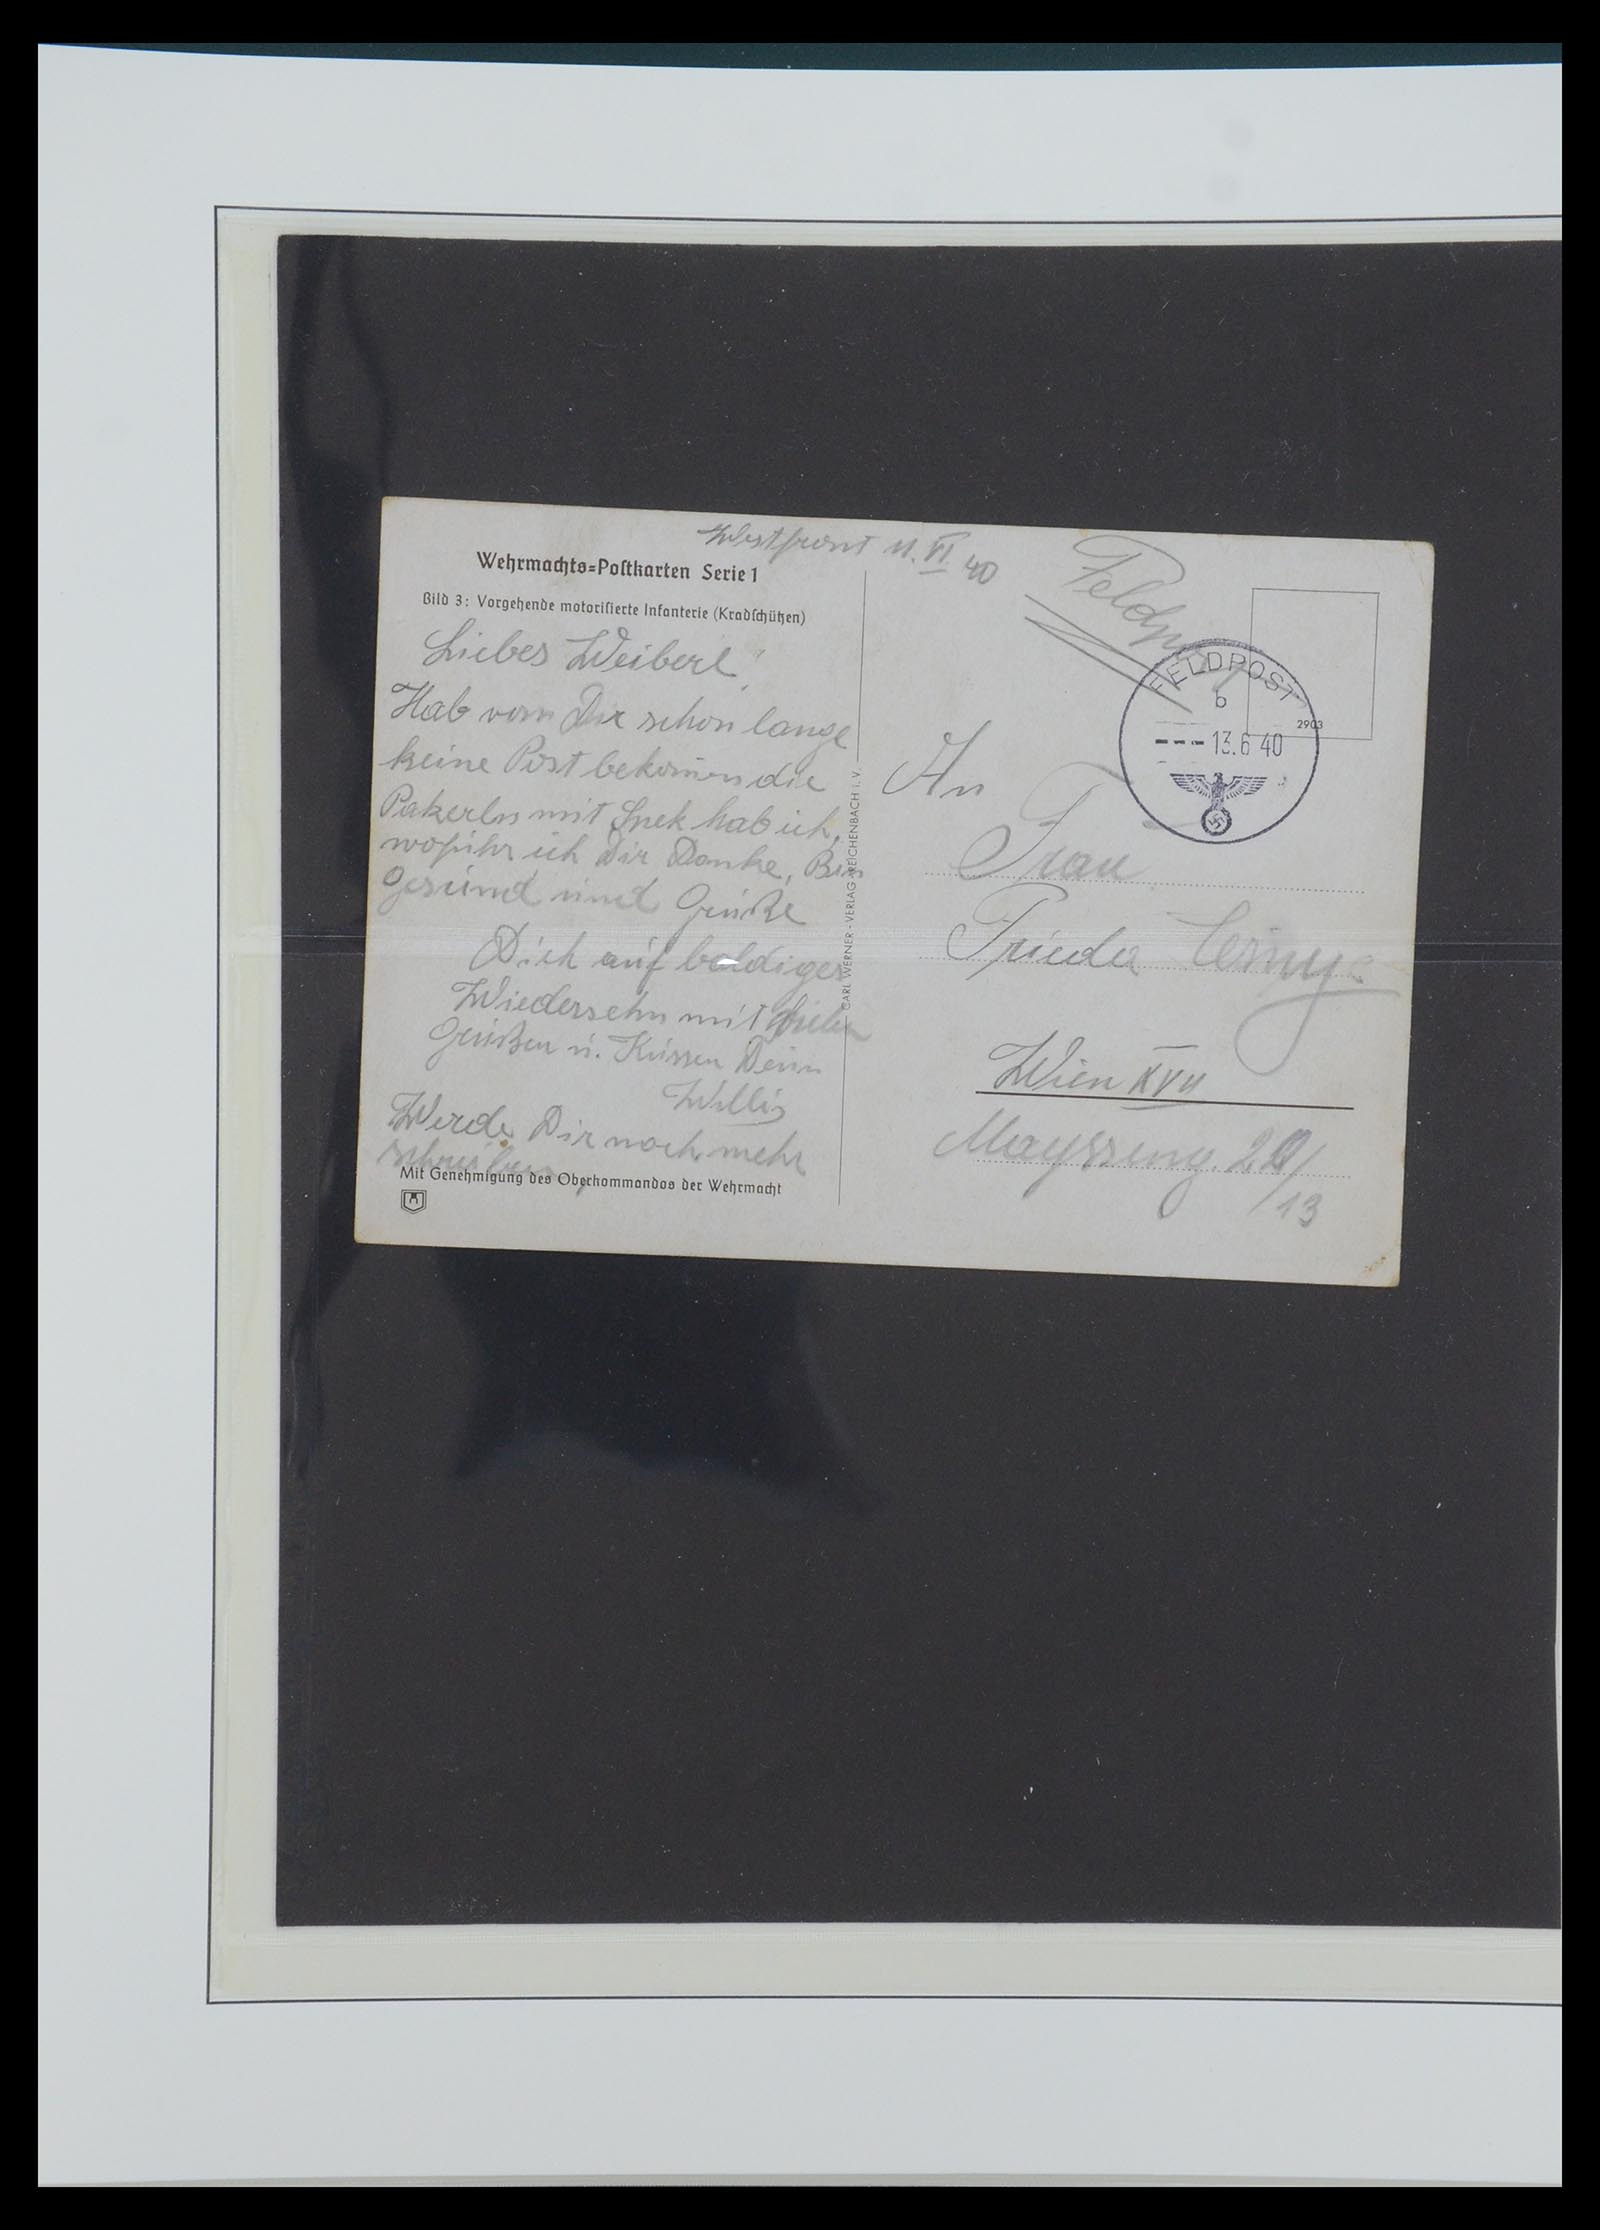 Westfront 11. VI. 40
Wehrmachts=Postkarten Serie 1
Bild 3: Vorgehende motorisierte Infanterie (Kradschützen)
Liebes Weiberl!
Hab von Dir schon lange
keine Post bekommen die
Pakerln mit Spek hab ich,
woführ ich Dir Danke, Bin
Gesund und Grüße
Dich auf baldiges
Wiedersehn mit vielen
Grüßen u. Küssen Dein
Willi
Werde Dir noch mehr
schreiben
Mit Genehmigung des Oberkommandos der Wehrmacht
CARL WERNER - VERLAG - REICHENBACH i. V.
Feldpost
FELDPOST
b
2903
--- 13.6 40
An
Frau
Frieda
Wien XVII
22/
13